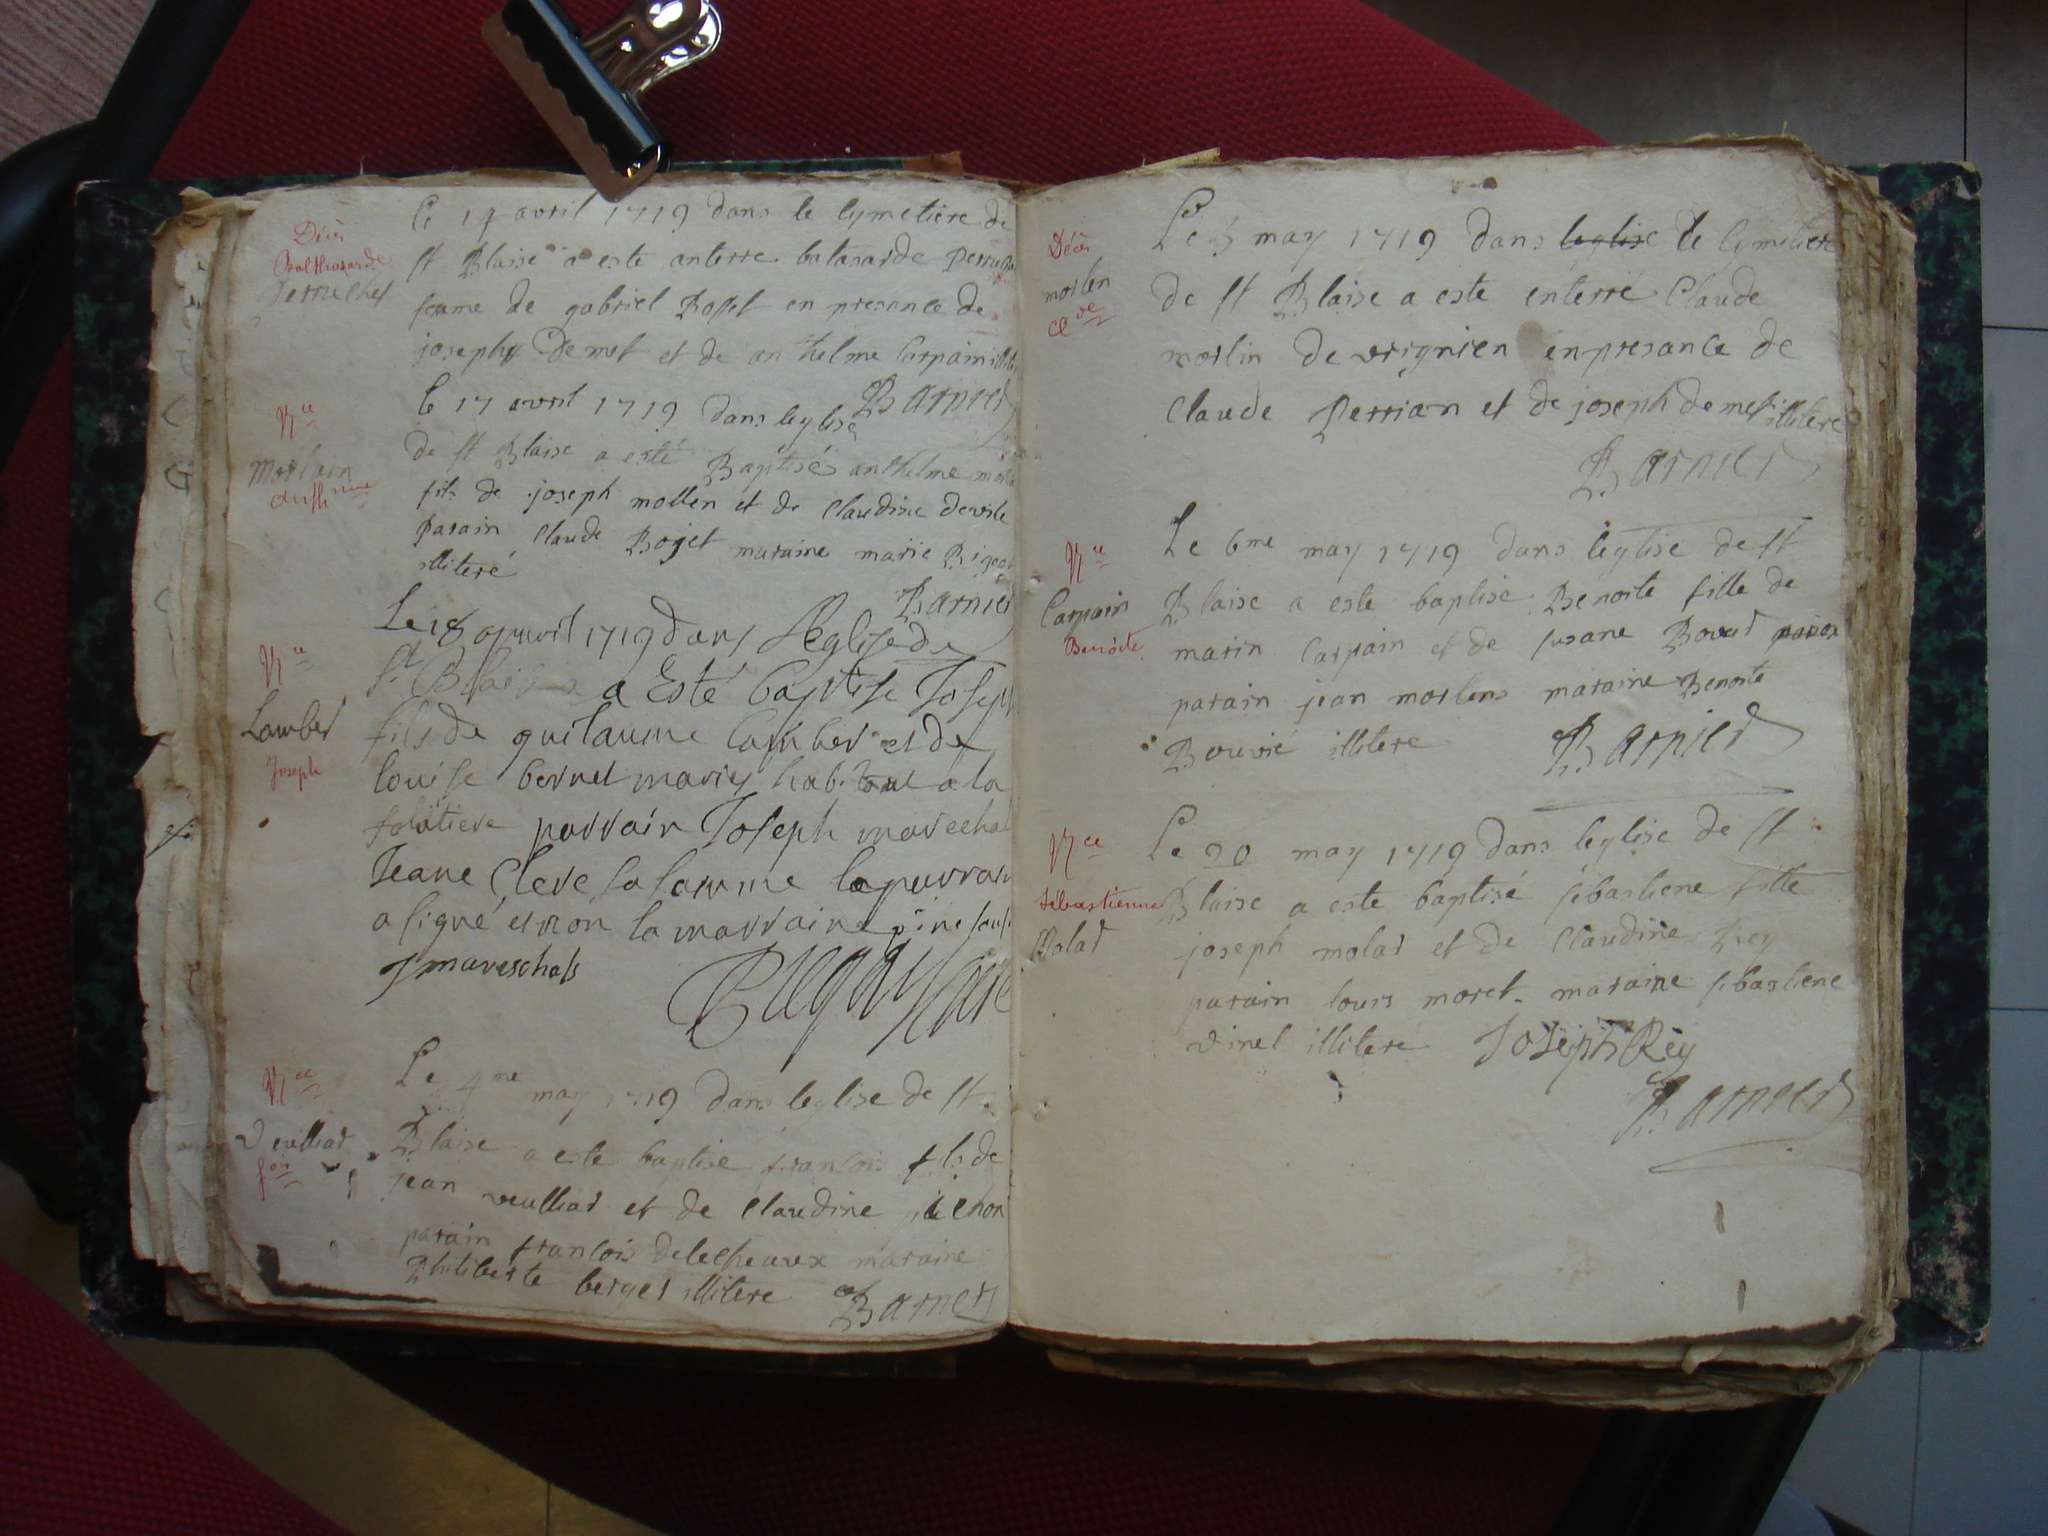 Décès
Balthazarde
Perruchet
Le 14 avril 1719 dans le cymetière de
st Blaise a este anterre batasarde
fame de gabriel en presance de
joseph Demet et de anthelme Carpain
Barnier
Nce
Morlain
anthme
Le 17 avril 1719 dans leglise
de st Blaise a esté Baptisé anthelme
fils de joseph mollen et de Claudine
parain Claude Bojet maraine marie
illiteré
Barnier
Nce
Lamber
Joseph
Le 18 avril 1719 dans l'eglise de
st Blaise a Esté baptise Joseph
fils de guilaume lamber et de
louise bernet maries habitant a la
folatiere parrain Joseph marechal
Jeane Clere sa famme le parrain
a signé et non la marraine
J mareschals
Nce
Veulliar
fois
Le 4me may 1719 dans leglise de st
Blaise a este baptise francois fils de
jean veulliar et de Claudine
parain francois delecheaux maraine
Philiberte berger illitere
Barnier
Décès
morlen
Cde
Le 5 may 1719 dans leglise le cymetiere
de st Blaise a este enterré Claude
morlin de vrignien en presance de
Claude Perrian et de joseph demet illitere
Barnier
Nce
Carpain
Benoite
Le 6me may 1719 dans leglise de st
Blaise a este baptise Benoite fille de
marin Carpain et de susane
parain jean morlens maraine Benoite
Bouvié illitere
Barnier
Nce
Sebastienne
Molar
Le 20 may 1719 dans leglise de st
Blaise a este baptisé sebastiene fille
joseph molar et de Claudine Rey
parain louis moret maraine sebastiene
vinet illiteré
Joseph Rey
Barnier